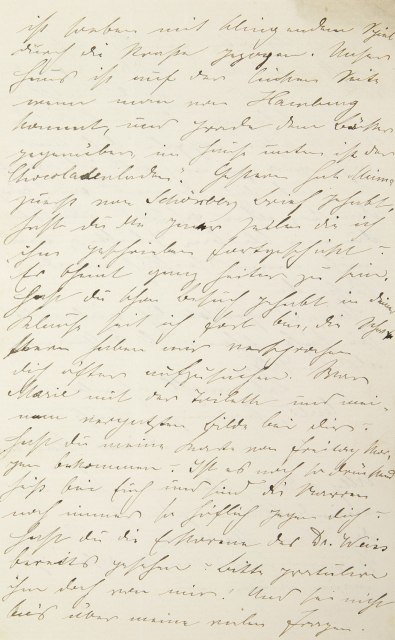 ist soeben mit klingendem Spiel
durch die Strasse gezogen. Unser
Haus ist auf der linken Seite
wenn man von Hamburg
kommt, und grade dem
gegenüber, im Hause unten ist der
Chocoladenladen. Gestern hat Mama
von Schönberg Brief gehabt,
hast du die paar Zeilen die ich
ihm geschrieben fortgeschickt?
Er scheint ganz heiter zu sein.
Hast du schon Besuch gehabt in deiner
Klause seit ich fort bin, die
haben mir versprochen
dich öfters aufzusuchen. War
Marie mit der Toilette und mei-
nem Bilde bei dir.
Hast du meine Karte von Freitag Mor-
gen bekommen? Ist es noch so drückend
heiss bei Euch und sind die
noch immer so höflich gegen dich?
Hast du die des Dr. Weiss
bereits gesehen? Bitte gratuliere
ihm doch von mir! Und sei nicht
bös über meine vielen Fragen.